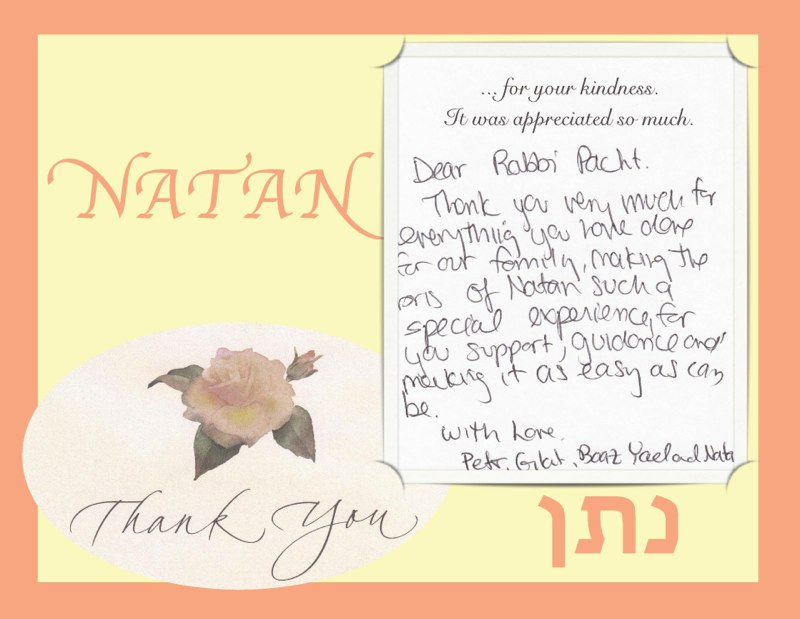 NATAN
... for your kindness.
It was appreciated so much.
Dear Rabbi Pacht.
Thank you very much for
everything you have done
for our family, making the
bris of Natan such a
special experience, for
you support, guidance and
making it as easy as can
be.
with Love.
Petr, Gilat, Boaz Yael and Nata
Thank You
נתן